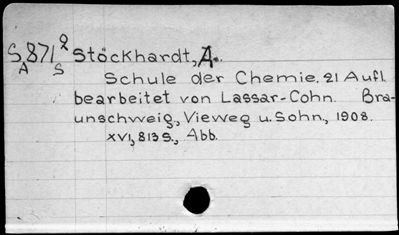 S871² Stöckhardt, A.
A S
Schule der Chemie. 21 Aufl.
bearbeitet von Lassar-Cohn. Bra-
unschweig, Vieweg u. Sohn, 1908.
XVI, 813 S., Abb.